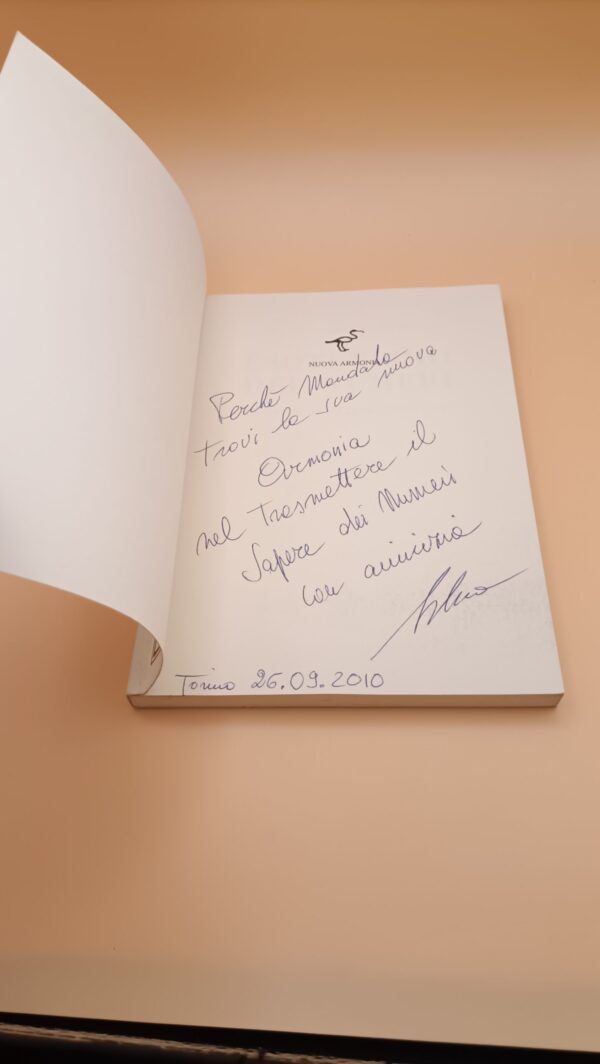 NUOVA ARMONIA
Perchè Mandala
trovi la sua nuova
Armonia
nel trasmettere il
Sapere dei Numeri
con amicizia
Torino 26.09.2010